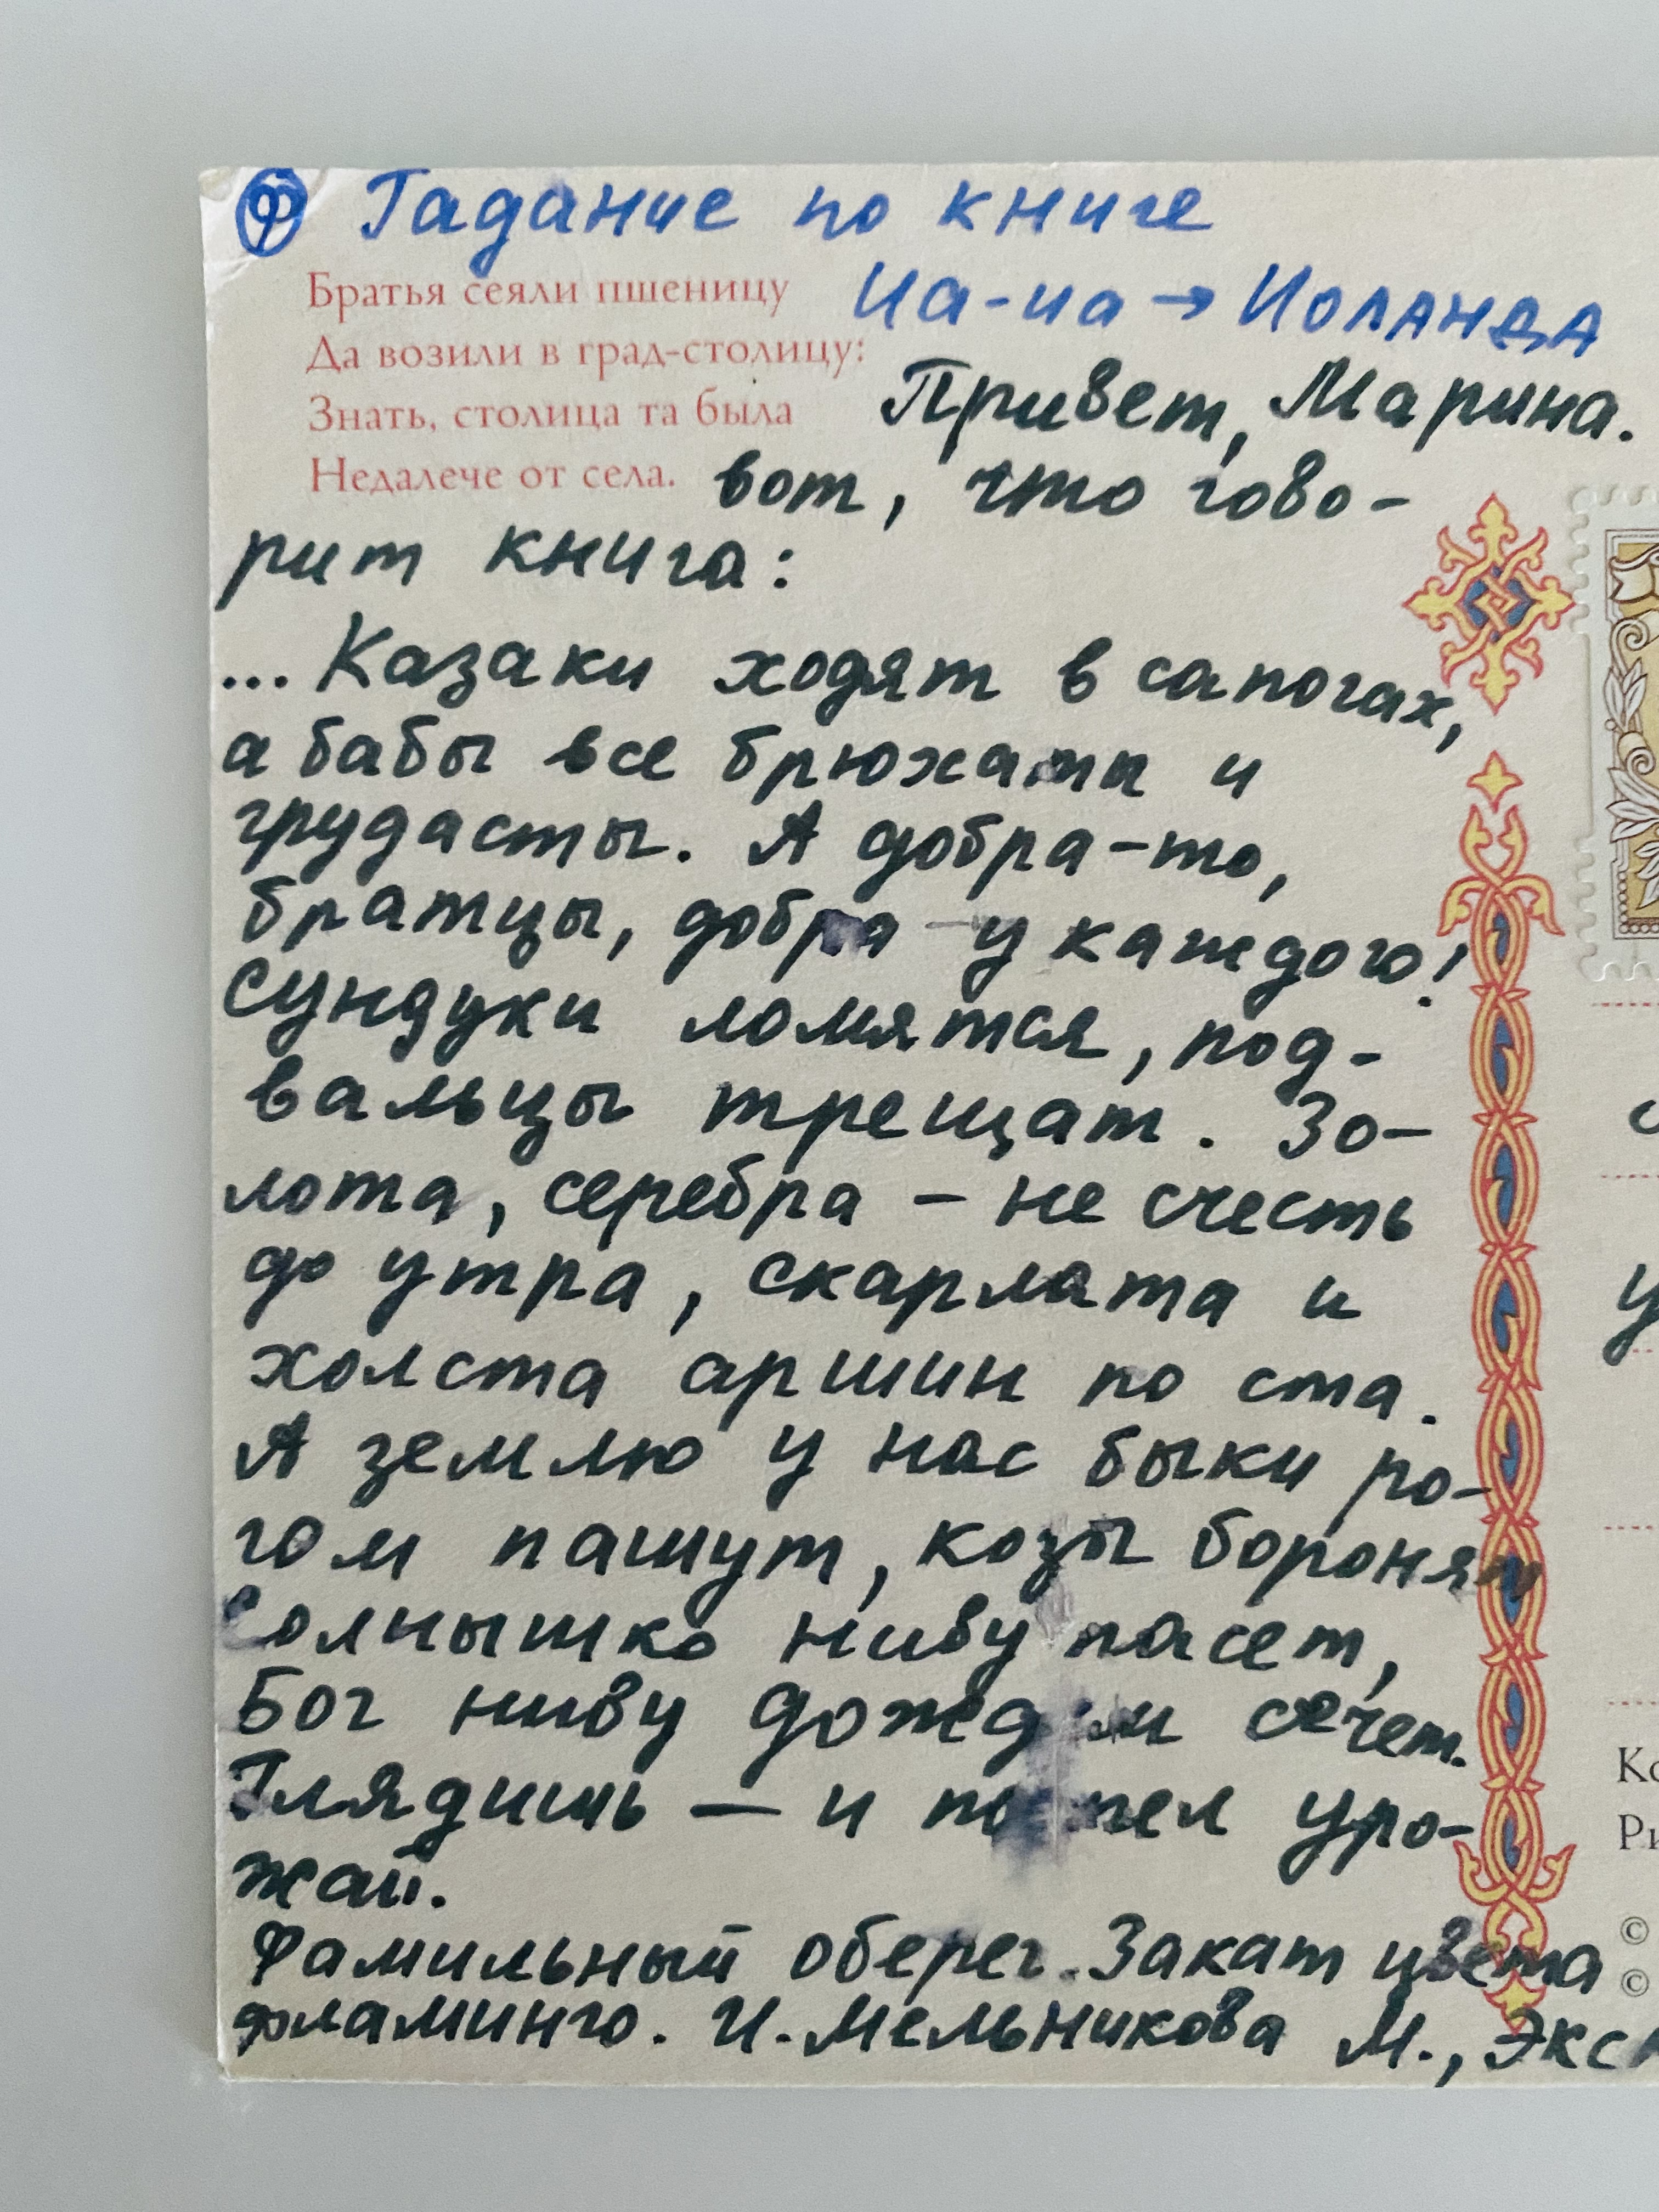 Ф Гадание по книге
Братья сеяли пшеницу
Иа-иа → Иоланда
Да возили в град-столицу:
Привет, Марина.
Знать, столица та была
Недалече от села.
вот, что гово-
рит книга:
... Казаки ходят в сапогах,
а бабы все брюхаты и
грудасты. А добра-то,
братцы, добра - у каждого!
Сундуки ломятся, под-
вальцы трещат. Зо-
лота, серебра - не счесть
до утра, скарлата и
холста аршин по ста.
А землю у нас быки ро-
гом пашут, козы боронят
Солнышко ниву пасет,
Бог ниву дождем сечет.
Глядишь — и поспел уро-
жай.
Фамильный оберег. Закат цвета
фламинго. И. Мельникова М., Экс
у
Ко
Ри
©
©